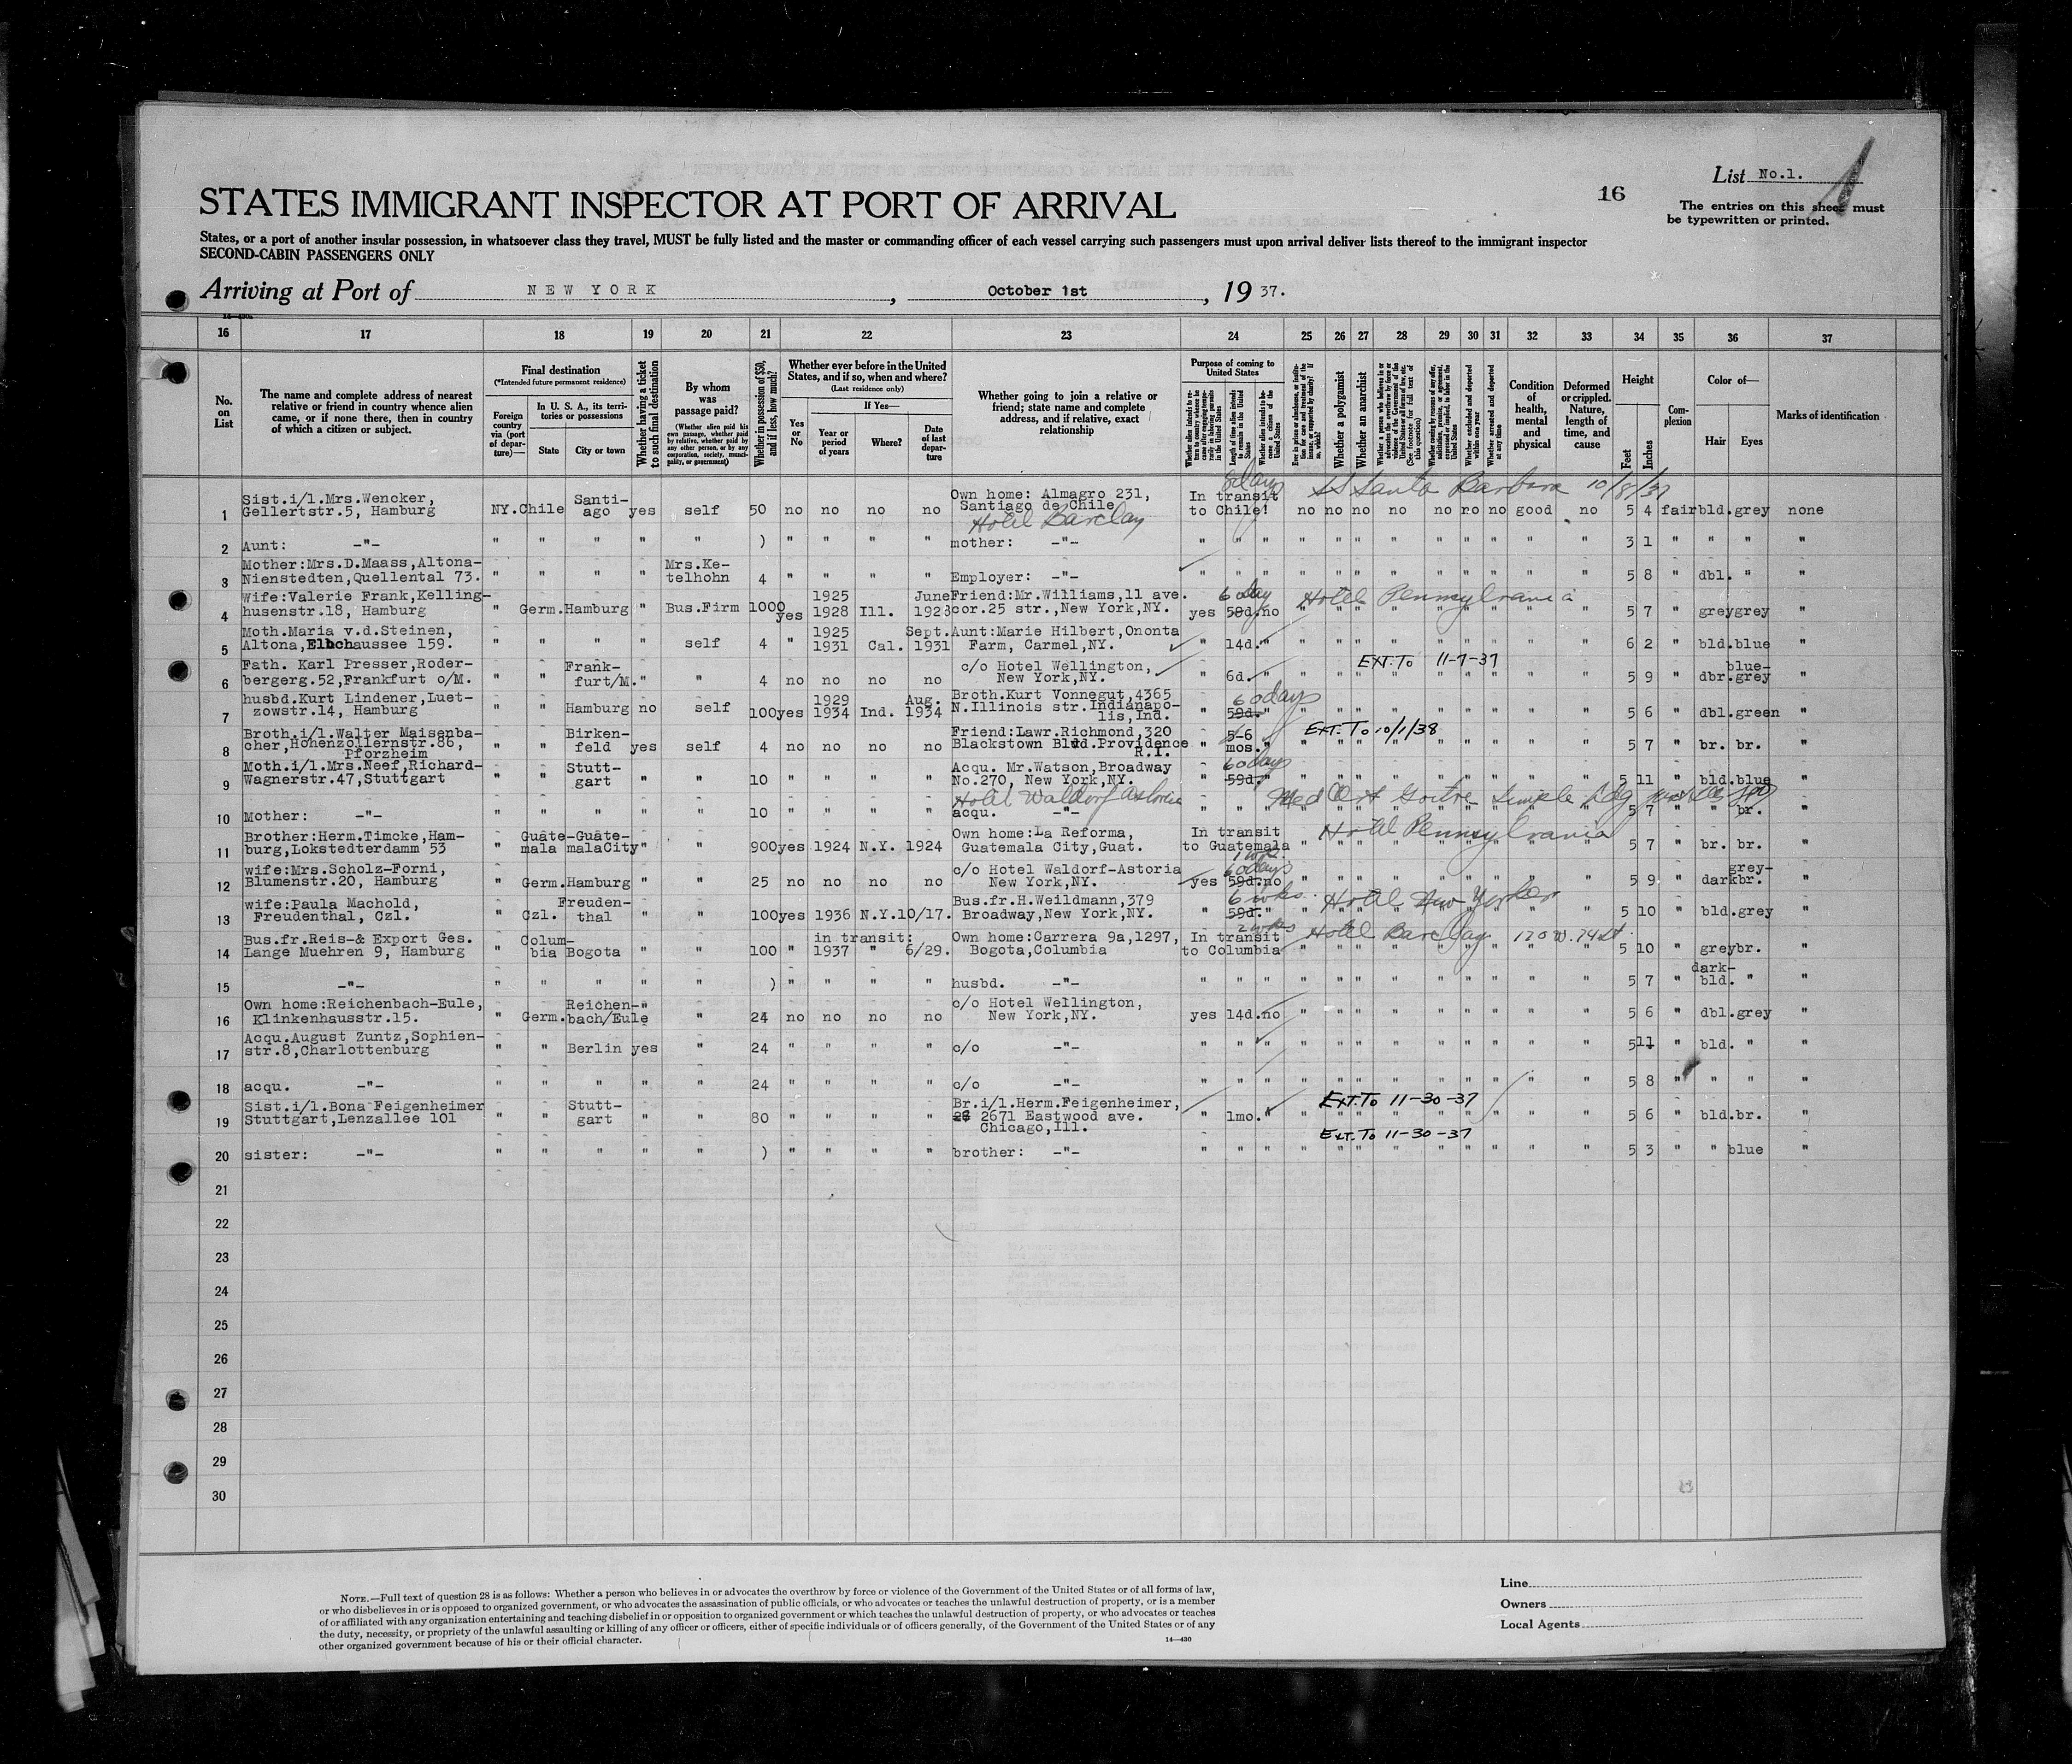 List No.1.
16
The entries on this sheet must
be typewritten or printed.
STATES IMMIGRANT INSPECTOR AT PORT OF ARRIVAL
States, or a port of another insular possession, in whatsoever class they travel, MUST be fully listed and the master or commanding officer of each vessel carrying such passengers must upon arrival deliver lists thereof to the immigrant inspector
SECOND-CABIN PASSENGERS ONLY
Arriving at Port of NEW YORK, October 1st, 1937.
16 17 18 19 20 21 22 23 24 25 26 27 28 29 30 31 32 33 34 35 36 37
No. on List
The name and complete address of nearest relative or friend in country whence alien came, or if none there, then in country of which a citizen or subject.
Final destination
(*Intended future permanent residence)
Foreign country via (port of departure)—
In U. S. A., its territories or possessions
State
City or town
Whether having a ticket to such final destination
By whom was passage paid?
(Whether alien paid his own passage, whether paid by relative, whether paid by any other person, or by any corporation, society, municipality, or government)
Whether in possession of $50, and if less, how much?
Whether ever before in the United States, and if so, when and where?
(Last residence only)
If Yes—
Yes or No
Year or period of years
Where?
Date of last departure
Whether going to join a relative or friend; state name and complete address, and if relative, exact relationship
Purpose of coming to United States
Length of time alien intends to remain in the United States
Whether a polygamist
Whether an anarchist
Condition of health, mental and physical
Deformed or crippled. Nature, length of time, and cause
Height
Feet
Inches
Complexion
Color of—
Hair
Eyes
Marks of identification
8days SS Santa Barbara 10/8/37
1 Sist.i/l.Mrs.Wencker, Gellertstr.5, Hamburg NY. Chile Santi-ago yes self 50 no no no no Own home: Almagro 231, Santiago de Chile In transit to Chile! no no no no no no no good no 5 4 fair bld. grey none
Hotel Barclay
2 Aunt: -"- " " " " " ) " " " " mother: -"- " " " " " " " " " " " " 3 1 " " " "
3 Mother:Mrs.D.Maass,Altona-Nienstedten,Quellental 73. " " " " Mrs.Ke-telhohn 4 " " " " Employer: -"- " " " " " " " " " " " " 5 8 " dbl. " "
4 Wife:Valerie Frank,Kelling-husenstr.18, Hamburg " Germ. Hamburg " Bus.Firm 1000 yes 1925 1928 Ill. June 1928 Friend:Mr.Williams,11 ave. cor.25 str.,New York,NY. yes 59d. 60 day no Hotel Pennsylvania " " " " " " " " 5 7 " grey grey "
5 Moth.Maria v.d.Steinen, Altona,Elbchaussee 159. " " " " self 4 " 1925 1931 Cal. Sept. 1931 Aunt:Marie Hilbert,Ononta Farm, Carmel,NY. " 14d. " " " " " " " " " " 6 2 " bld. blue "
6 Fath. Karl Presser,Roder-bergerg.52,Frankfurt o/M. " " Frank-furt/M. " " 4 no no no no c/o Hotel Wellington, New York,NY. " 6d. " EXT. TO 11-7-37 " " " " " " " " " 5 9 " dbr. blue-grey "
7 husbd.Kurt Lindener,Luet-zowstr.14, Hamburg " " Hamburg no self 100 yes 1929 1934 Ind. Aug. 1934 Broth.Kurt Vonnegut,4365 N.Illinois str.Indianapo-lis,Ind. " 59d. 60days " " " " " " " " " " 5 6 " dbl. green "
8 Broth.i/l.Walter Maisenba-cher,Hohenzollernstr.86, Pforzheim " " Birken-feld yes self 4 no no no no Friend:Lawr.Richmond,320 Blackstown Blvd.Providence R.I. " 5-6 mos. " EXT. TO 10/1/38 " " " " " " " " " 5 7 " br. br. "
9 Moth.i/l.Mrs.Neef,Richard-Wagnerstr.47,Stuttgart " " Stutt-gart " " 10 " " " " Acqu. Mr.Watson,Broadway No.270, New York,NY. " 59d. 60days " " " " " " " " " " 5 11 " bld. blue "
Hotel Waldorf Astoria
10 Mother: -"- " " " " " 10 " " " " acqu. -"- " " " Med Art 5 7 " " br. "
11 Brother:Herm.Timcke,Ham-burg,Lokstedterdamm 53 " Guate-mala Guate-malaCity " " 900 yes 1924 N.Y. 1924 Own home:La Reforma, Guatemala City,Guat. In transit to Guatemala Hotel Pennsylvania " " " " " " " " " 5 7 " br. br. "
12 wife:Mrs.Scholz-Forni, Blumenstr.20, Hamburg " Germ. Hamburg " " 25 no no no no c/o Hotel Waldorf-Astoria New York,NY. yes 59d. 60days no " " " " " " " " " 5 9 " dark grey-br. "
13 wife:Paula Machold, Freudenthal, Czl. " Czl. Freuden-thal " " 100 yes 1936 N.Y. 10/17. Bus.fr.H.Weildmann,379 Broadway,New York,NY. " 59d. 6 wks. " Hotel New Yorker " " " " " " " " " 5 10 " bld. grey "
14 Bus.fr.Reis-& Export Ges. Lange Muehren 9, Hamburg " Colum-bia Bogota " " 100 " in transit: 1937 " 6/29. Own home:Carrera 9a,1297, Bogota,Columbia In transit to Columbia 2wks Hotel Barclay 170 W. 74 St. " " " " " " " " " 5 10 " grey br. "
15 -"- " " " " " ) " " " " husbd. -"- " " " " " " " " " " " " 5 7 " dark-bld. " "
16 Own home:Reichenbach-Eule, Klinkenhausstr.15. " Germ. Reichen-bach/Eule " " 24 no no no no c/o Hotel Wellington, New York,NY. yes 14d. no " " " " " " " " " 5 6 " dbl. grey "
17 Acqu.August Zuntz,Sophien-str.8,Charlottenburg " " Berlin yes " 24 " " " " c/o -"- " " " " " " " " " " " " 5 11 " bld. " "
18 acqu. -"- " " " " " 24 " " " " c/o -"- " " " " " " " " " " " " 5 8 " " " "
19 Sist.i/l.Bona Feigenheimer Stuttgart,Lenzallee 101 " " Stutt-gart " " 80 " " " " Br.i/l.Herm.Feigenheimer, 2671 Eastwood ave. Chicago,Ill. " 1mo. " EXT. TO 11-30-37 " " " " " " " " " 5 6 " bld. br. "
EXT. TO 11-30-37
20 sister: -"- " " " " " ) " " " " brother: -"- " " " " " " " " " " " " 5 3 " " blue "
21
22
23
24
25
26
27
28
29
30
23
NOTE.—Full text of question 28 is as follows: Whether a person who believes in or advocates the overthrow by force or violence of the Government of the United States or of all forms of law,
or who disbelieves in or is opposed to organized government, or who advocates the assassination of public officials, or who advocates or teaches the unlawful destruction of property, or is a member
of or affiliated with any organization entertaining and teaching disbelief in or opposition to organized government or which teaches the unlawful destruction of property, or who advocates or teaches
the duty, necessity, or propriety of the unlawful assaulting or killing of any officer or officers, either of specific individuals or of officers generally, of the Government of the United States or of any
other organized government because of his or their official character.
14—430
Line
Owners
Local Agents